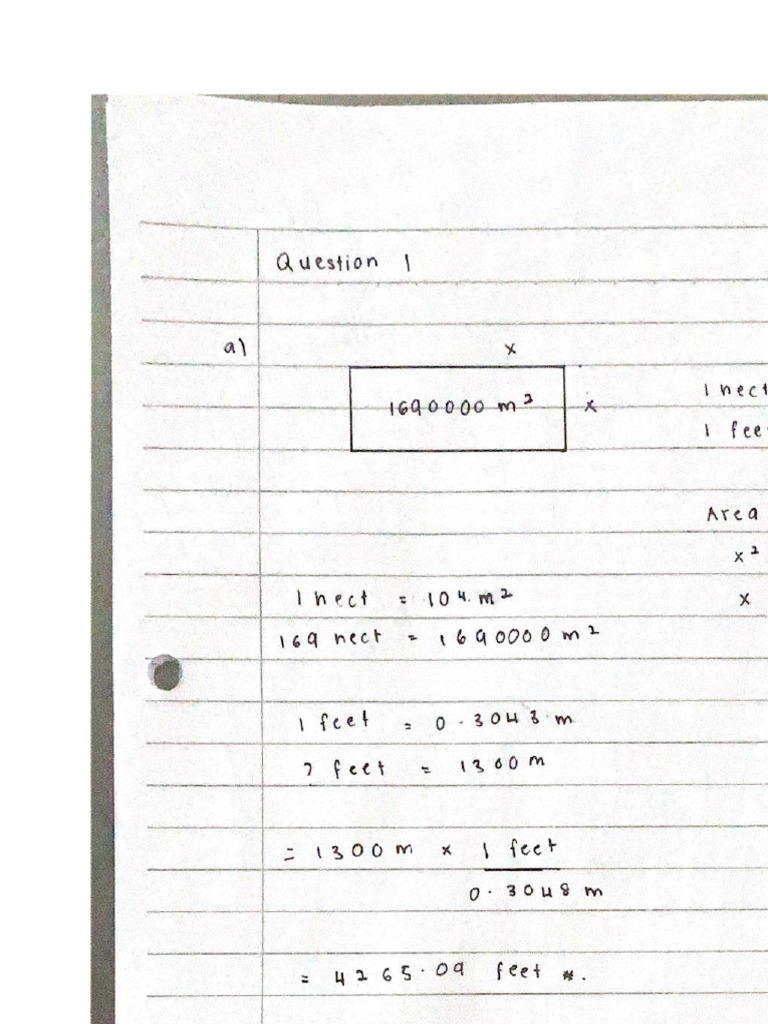 Question 1
a)
x
1690000 m² x
1 hect
1 fee
Area
x²
1 hect = 104. m² x
169 hect = 1690000 m²
1 feet = 0.3048 m
? feet = 1300 m
= 1300 m x 1 feet
0.3048 m
= 4265.09 feet *.